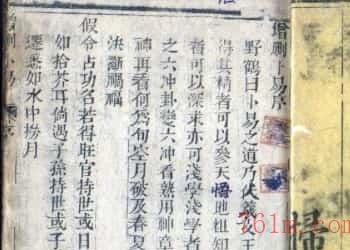 增刪卜易序
野鶴曰卜易之道乃伏羲
得其精者可以參天悟地
者可以深求亦可淺學淺學者
之六冲卦變六冲看熟用神章
神再看何爲旬空月破及春夏
決斷禍福
假令占功名若得旺官持世或日
如拾芥耳倘遇子孫持世或子
遷無如水中撈月
增刪卜易
761m.com